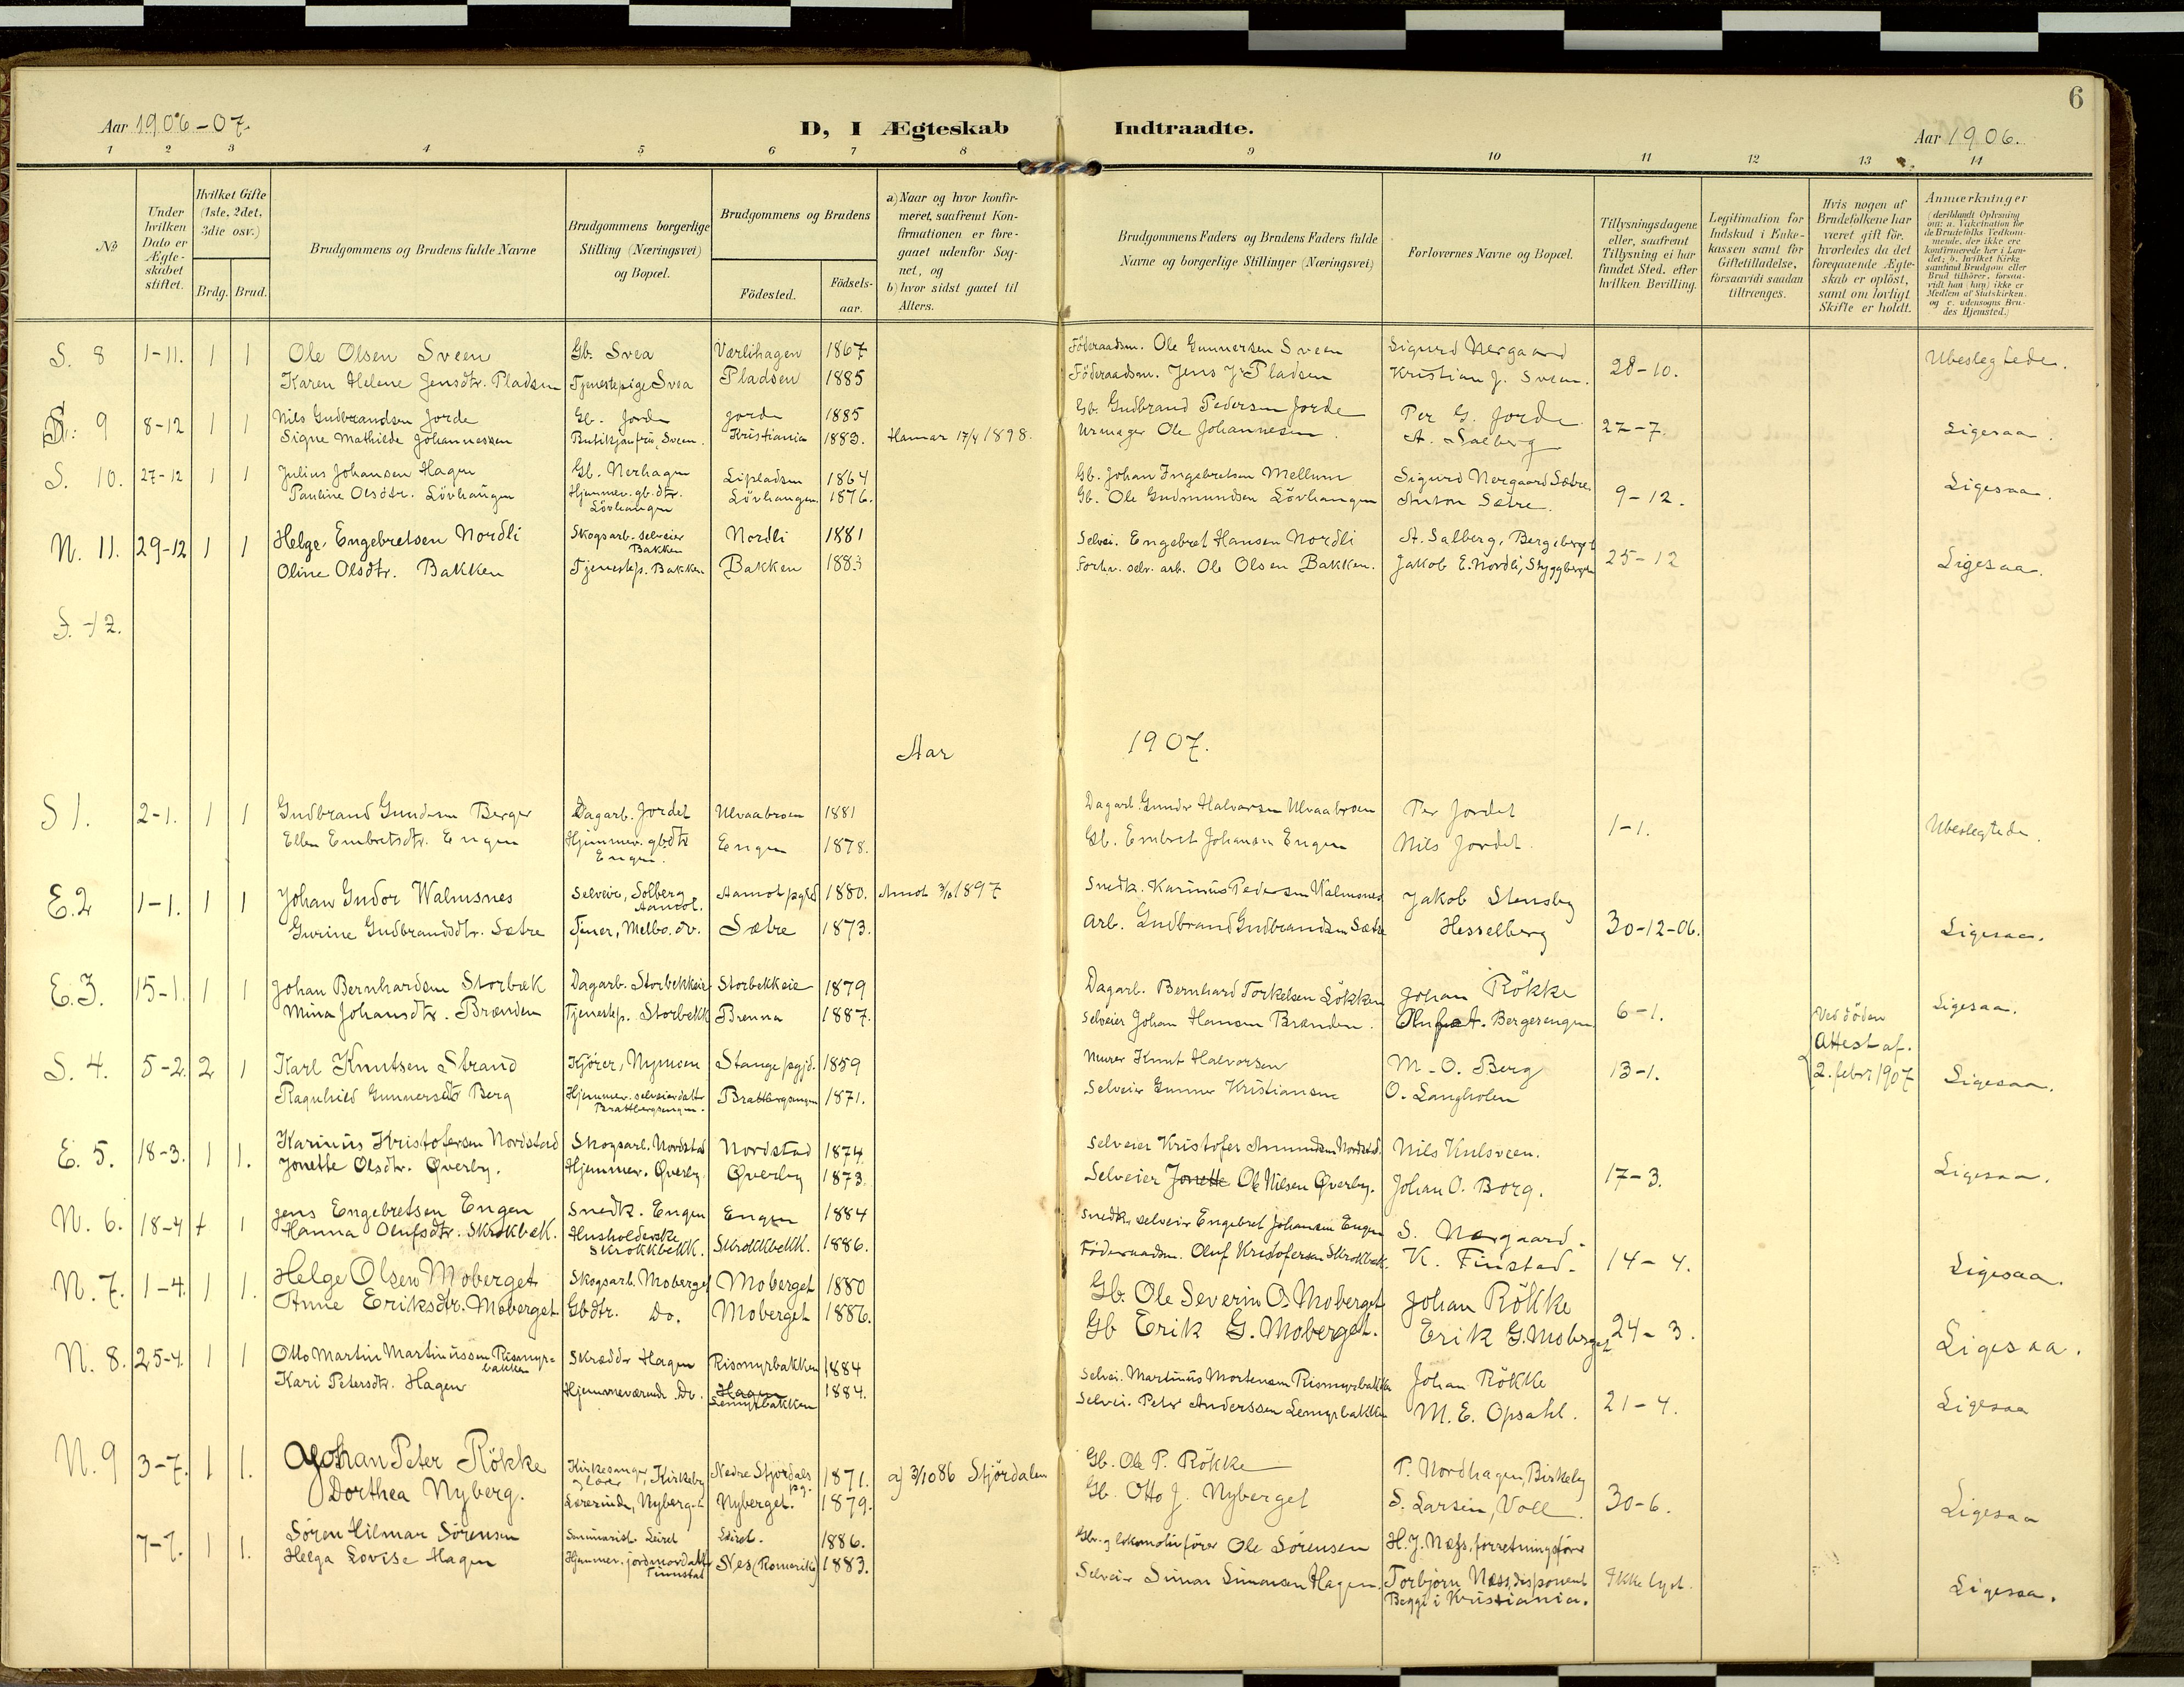 6
Aar 1906-07.
D, I Ægteskab Indtraadte.
Aar 1906.
1 2 3 4 5 6 7 8 9 10 11 12 13 14
No.
Under hvilken Dato er Ægte-skabet stiftet.
Hvilket Gifte (1ste, 2det, 3die osv.)
Brdg. Brud.
Brudgommens og Brudens fulde Navne
Brudgommens borgerlige Stilling (Næringsvei) og Bopæl.
Brudgommens og Brudens
Födested.
Födsels-aar.
a) Naar og hvor konfir-meret, saafremt Kon-firmationen er fore-gaaet udenfor Sog-net, og
b) hvor sidst gaaet til Alters.
Brudgommens Faders og Brudens Faders fulde Navne og borgerlige Stillinger (Næringsvei)
Forlovernes Navne og Bopæl.
Tillysningsdagene eller, saafremt Tillysning ei har fundet Sted, efter hvilken Bevilling.
Legitimation for Indskud i Enke-kassen samt for Giftetilladelse, forsaavidt saadan tiltrænges.
Hvis nogen af Brudefolkene har været gift för, hvorledes da det foregaaende Ægte-skab er oplöst, samt om lovligt Skifte er holdt.
Anmærkninger
(deriblandt Oplysning om: a. Vakcination for de Brudefolks Vedkom-mende, der ikke ere konfirmerede her i Lan-det; b. hvilket Kirke-samfund Brudgom eller Brud tilhörer, forsaa-vidt han (hun) ikke er Medlem af Statskirken, og c. udensogns Bru-des Hjemsted.)
S. 8 1-11. 1 1 Ole Olsen Sveen Gb. Svea Værlihagen 1867 Föderaadsm. Ole Gunnersen Sveen Sigurd Nergaard 28-10. Ubeslegtede.
Karen Helene Jensdtr. Pladsen Tjenestepige Svea Pladsen 1885 Föderaadsm. Jens J. Pladsen Kristian J. Sveen.
9 8-12 1 1 Nils Gudbrandsen Jorde Gb. Jorde Jorde 1885 Gb. Gudbrand Pedersen Jorde Per G. Jorde 27-7 Ligesaa.
Signe Mathilde Johannessen Butikjomfru, Sveen. Kristiania 1883. Hamar 17/4 1898. Urmager Ole Johannesen. A. Salberg
S. 10. 27-12 1 1 Julius Johansen Hagen Gb. Nerhagen Lipladsen 1864 Gb. Johan Ingebretsen Mellum Sigurd Nergaard Sætre 9-12. Ligesaa.
Pauline Olsdtr. Lövhaugen Hjemmev. gb. dtr. Lövhaugen Lövhaugen 1876. Gb. Ole Gudmundsen Lövhaugen Anton Sætre.
N. 11. 29-12 1 1 Helge Engebretsen Nordli Skogsarb. selveier Bakken Nordli 1881 Selvei. Engebret Hansen Nordli A. Salberg, Bergeberget 25-12 Ligesaa.
Oline Olsdtr. Bakken Tjenestep. Bakken Bakken 1883 Forhv. selv. arb. Ole Olsen Bakken. Jakob E. Nordli, Skyggberget
S. 12.
Aar 1907.
S 1. 2-1. 1 1 Gudbrand Gundersen Berger Dagarb. Jordet Ulvaabroen 1881 Dagarb. Gunder Halvorsen Ulvaabroen Per Jordet 1-1. Ubeslegtede
Ellen Embretsdtr. Engen Hjemmev. gbdtr Engen. Engen 1878. Gb. Embret Johansen Engen Nils Jordet.
E. 2 1-1. 1 1 Johan Gudor Walmsnes Selveier, Solberg Aamot. Aamot pgjld 1880. Amot 3/10 1897 Snedk. Karinius Pedersen Walmsnes Jakob Stensby 30-12-06. Ligesaa.
Gurine Gudbrandsdtr. Sætre Tjener, Melbo. do. Sætre 1873. Arb. Gudbrand Gudbrandsen Sætre Hesselberg
E. 3. 15-1. 1 1 Johan Bernhardsen Storbæk Dagarb. Storbekkeie Storbekkeie 1879 Dagarb. Bernhard Torkelsen Lökken Johan Rökke 6-1. Ligesaa.
Mina Johansdtr. Brænden Tjenestep. Storbekk Brenna 1887. Selveier Johan Hansen Brænden. Oluf A. Bergesengen
S. 4. 5-2. 2 1 Karl Knutsen Strand Kjörer, Nymoen Stange pgjd. 1859 Murer Knut Halvorsen M. O. Berg 13-1. Ved döden Attest af. 2. febr. 1907 Ligesaa.
Ragnhild Gunnersdtr Berg Hjemmev. selveierdatter Brattbergsengen. Brattbergsengen 1871. Selveier Gunner Kristiansen O. Langholen
E. 5. 18-3. 1 1. Karinius Kristofersen Nordstad Skogsarb. Nordstad Nordstad 1874 Selveier Kristofer Amundsen Nordstad. Nils Kulsveen. 17-3. Ligesaa.
Jonette Olsdtr. Øverby. Hjemmev. Øverby. Øverby 1873. Selveier Jonette Ole Nilsen Øverby. Johan O. Borg.
N. 6. 18-4 1 1 Jens Engebretsen Engen Snedk. Engen Engen 1884 Snedk. selveier Engebret Johansen Engen S. Nærgaard. 14-4. Ligesaa.
Hanna Olufsdtr. Skrokbæk. Husholderske Skrokkbekk. Skrokkbekk. 1886. Föderaadsm. Oluf Kristofersen Skrokbæk. K. Finstad.
N. 7. 1-4. 1 1. Helge Olsen Moberget Skogsarb. Moberget Moberget 1880 Gb. Ole Severin O. Moberget Johan Rökke 24-3. Ligesaa.
Anne Eriksdtr. Moberget Gbdtr. Do. Moberget 1886. Gb Erik G. Moberget. Erik G. Moberget
N. 8. 25-4. 1 1 Otto Martin Martinussen Rismyr-bakken Skrædder Hagen Rismyrbakken 1884 Selvei. Martinus Mortensen Rismyrbakken Johan Rökke 21-4. Ligesaa
Kari Petersdtr. Hagen Hjemmeværende Do. Hagen Lemyrbakken 1884. Selvei. Peter Anderssen Lemyrbakken M. E. Opsahl.
N. 9 3-7. 1 1. Johan Peter Rökke Kirkesanger og lærer, Kirkeby Nedre Stjördals pg. 1871. a) 3/10 86 Stjördalen Gb. Ole P. Rökke P. Nordhagen, Birkeby 30-6. Ligesaa
Dorthea Nyberg. Lærerinde, Nyberget Nyberget. 1879. Gb. Otto J. Nyberget S. Larsen, Voll.
7-7. 1 1. Sören Hilmar Sörensen Seminarist. Leiret Leiret. 1886. Gbr. og lokomotivförer Ole Sörensen H. J. Næss, forretningsförer Ikke lyst. Ligesaa.
Helga Lovise Hagen Hjemmev. jordmordatter Finnstad Nes (Romerike) 1883. Selveier Simon Simonsen Hagen. Torbjörn Næss, disponent
Begge i Kristiania.